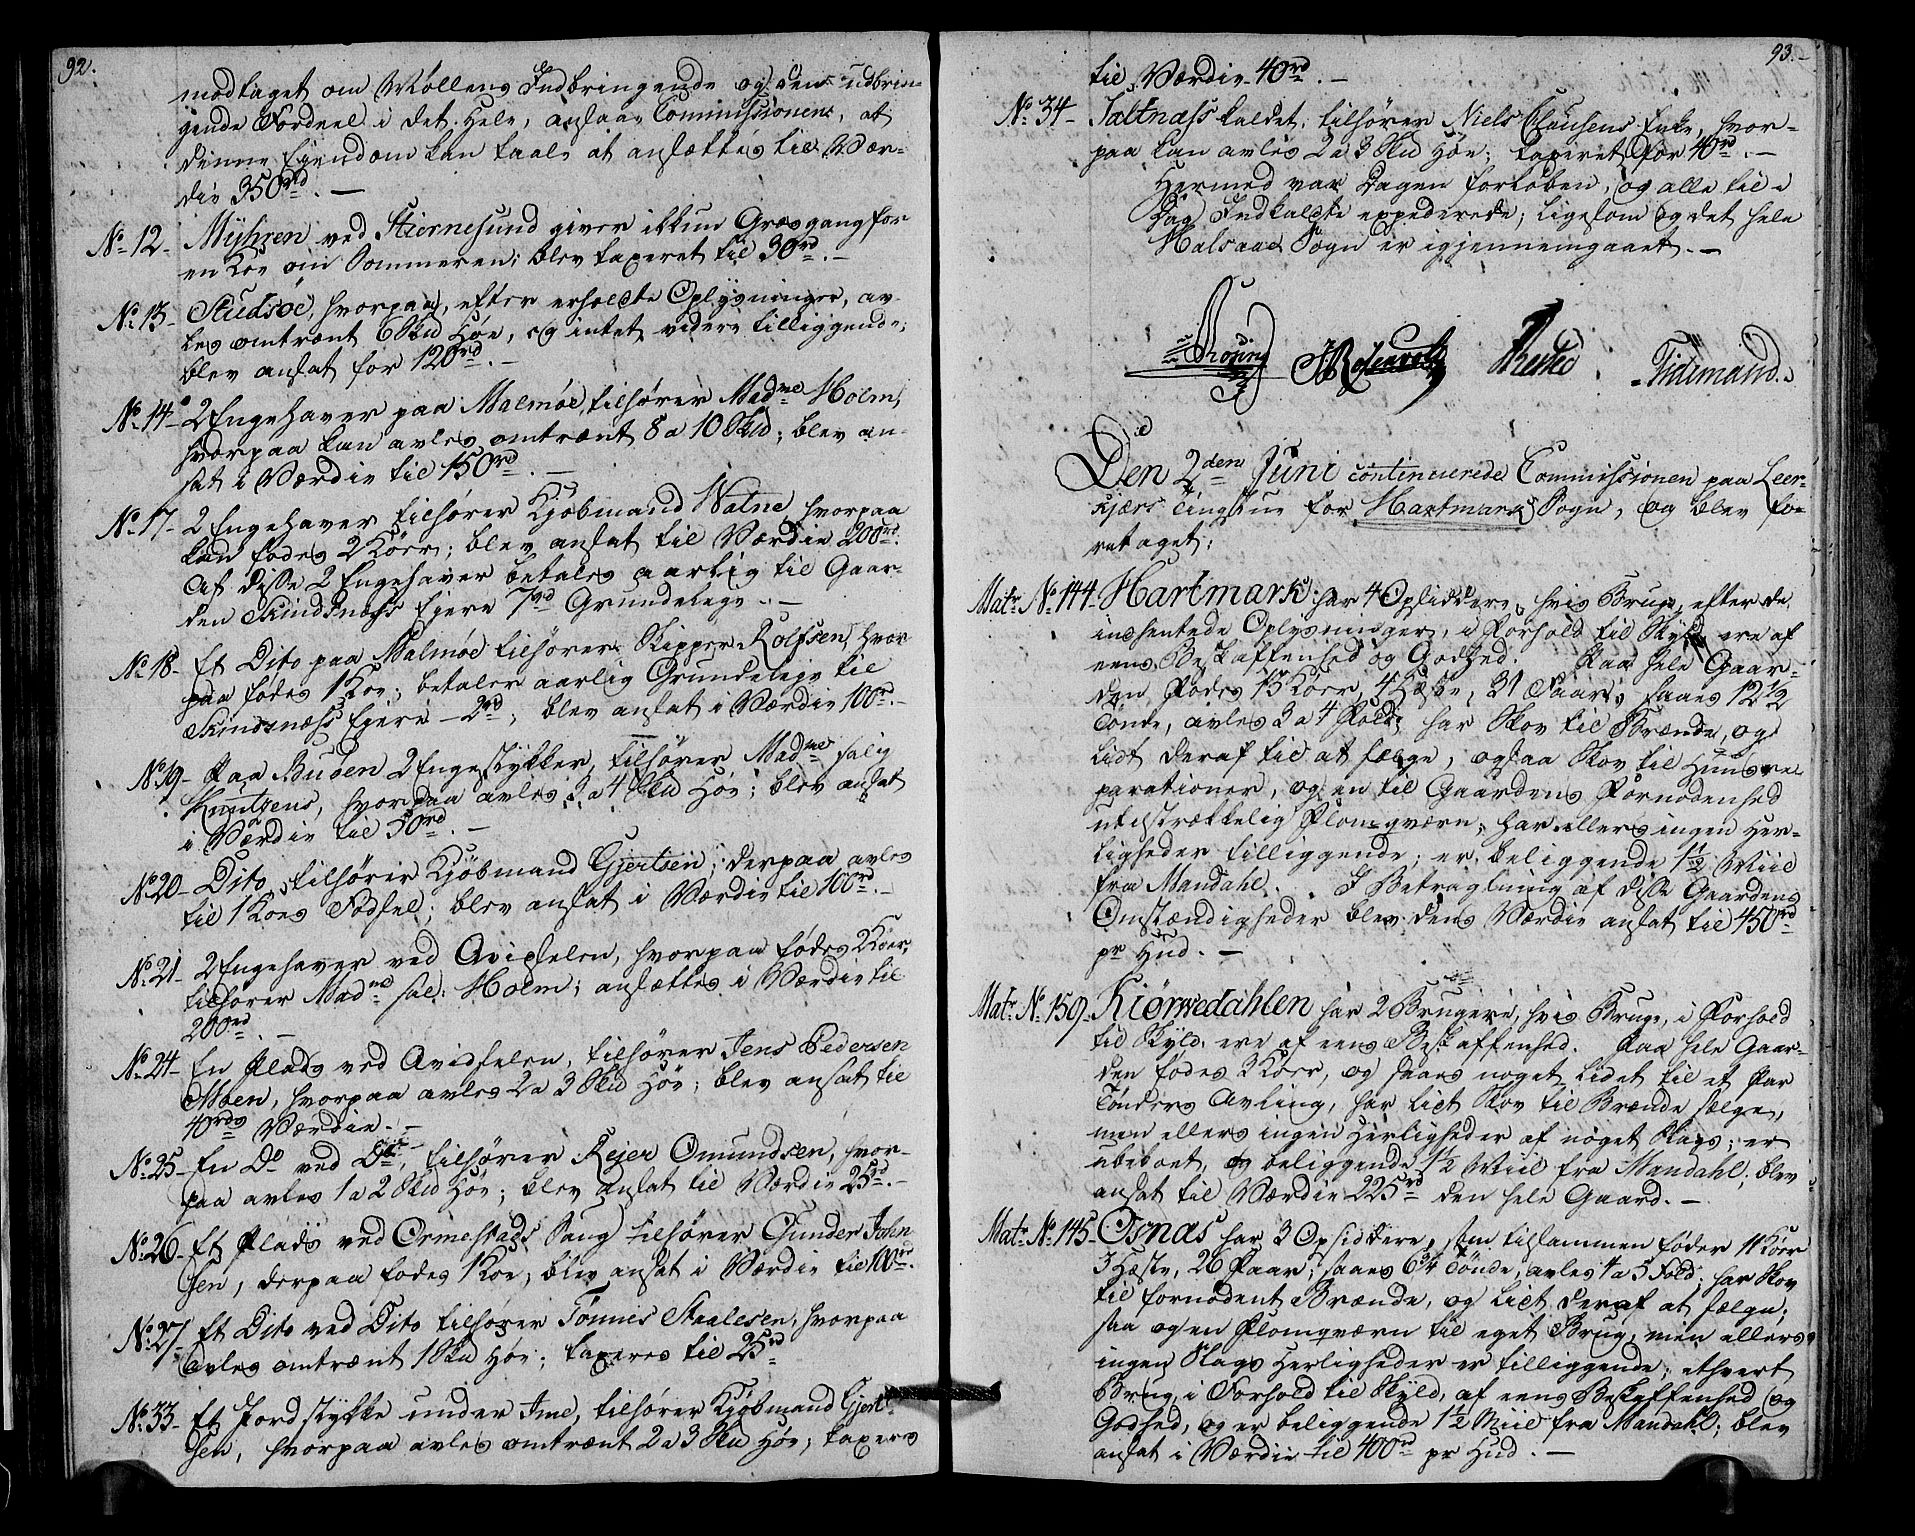 92.
modtaget om Møllens Indbringende og den udbrin-
gende Fordeel i det Hele, ansaae Commissionen, at
denne Eiendom kan taale at ansættes til Vær-
die 350rd. —
No 12 - Myhren ved Stiernesund giver ikkun Græsgang for
en Koe om Sommeren; blev taxeret til 30rd. —
No 13 - Studsøe, hvorpaa, efter erholdte Oplysninger, av-
les omtrent 6 Skd Høe, og intet videre tilliggende;
blev ansat for 120rd. —
No 14 - 2 Engehaver paa Malmøe, tilhører Madme Holm,
hvorpaa kan avles omtrent 8 a 10 Skd; blev an-
sat i Værdie til 150rd. —
No 17 - 2 Engehaver tilhører Kjøbmand Natne, hvorpaa
kan fødes 2 Køer; blev ansat til Værdie 200rd.
Af disse 2 Engehaver betales aarlig til Gaar-
den Skindsnæss Eiere 7rd Grundeleye. —
No 18 - Et Dito paa Malmøe tilhører Skipper Rolfsen, hvor-
paa fødes 1 Koe; betaler aarlig Grundeleje til
Skindsnæss Eiere - 2rd; blev ansat i Værdie 100rd. —
No 19 - Paa Buøen 2 Engestykker, tilhører Madme salig
Knutzens, hvorpaa avles 3 a 4 Skd Høe; blev ansat
i Værdie til 50rd. —
No 20 - Dito, tilhører Kjøbmand Gjertsen; derpaa avles
til 1 Koes Fødsel; blev ansat i Værdie til 100rd. —
No 21 - 2 Engehaver ved Avidselen, hvorpaa fødes 2 Køer,
tilhører Madme sal: Holm; ansættes i Værdie til
200rd. —
No 24 - En Plads ved Avidselen, tilhører Jens Pedersen
Moen, hvorpaa avles 2 a 3 Skd Høe; blev ansat til
40rds Værdie. —
No 25 - En Do ved Do, tilhører Rejer Omundsen, hvor-
paa avles 1 a 2 Skd Høe; blev ansat til Værdie 25rd. —
No 26 - Et Plads ved Ormestads Saug tilhører Gunder John-
sen, derpaa fødes 1 Koe; blev ansat i Værdie til 100rd.
No 27 - Et Dito ved Dito tilhører Tønnis Staalesen, hvorpaa
avles omtrent 1 Skd Høe; taxeres til 25rd
No 33 - Et Jordstykke under Ime, tilhører Kjøbmand Gjert-
sen, hvorpaa avles omtrent 2 a 3 Skd Høe; taxeres
93. —
til Værdie 40rd. —
No 34 - Taltnæss kaldet, tilhører Niels Clausens Enke, hvor-
paa kan avles 2 a 3 Skd Høe; taxeret for 40rd. —
Hermed var Dagen forløben, og alle til i
Dag Indkaldte expederede; ligesom og det hele
Halsaae Sogn er igjennemgaaet. —
Tidemand.
Den 2den Juni continuerede Commissionen paa Leer-
kjærs Tingstue for Hartmark Sogn, og blev fo-
retaget:
Matr No 144. Hartmark har 4 Opsiddere, hvis Brug, efter de
indhentede Oplysninger, i Forhold til Skyld ere af
eens Beskaffenhed og Godhed. Paa hele Gaar-
den Fødes 15 Køer, 4 Hæste, 31 Faar; saaes 12 1/2
Tønde, avles 3 a 4 Fold; har Skov til Brænde, og
lidt deraf til at sælge, ogsaa Skov til Huusre-
parationer, og en til Gaardens Fornødenhed
utilstrækkelig Flomqværn; har ellers ingen Her-
ligheder tilliggende; er beliggende 1 1/2 Miil
fra Mandahl. I Betragtning af disse Gaardens
Omstændigheder blev dens Værdie ansat til 450rd
pr Hud. —
Matr No 159. Kiørredahlen har 2 Brugere, hvis Brug, i Forhold
til Skyld, ere af eens Beskaffenhed. Paa hele Gaar-
den fødes 3 Køer, og saaes noget lidet til et Par
Tønders Avling, har lidt Skov til Brænde sælge,
men ellers ingen Herligheder af noget Slags; er
ubeboet, og beliggende 1 1/2 Miil fra Mandahl; blev
ansat til Værdie 225rd den hele Gaard. —
Matr No 145. Osnæs har 3 Opsiddere, som tilsammen føder 11 Køer
3 Hæste, 26 Faar; saaes 6 3/4 Tønde, avles 4 a 5 Fold; har Skov
til fornødent Brænde, og lidt deraf at sælge;
saa og en Flomqværn til eget Brug, men ellers
ingen Slags Herligheder er tilliggende; ethvert
Brug, i Forhold til Skyld, af eens Beskaffenhed og
Godhed, og er beliggende 1 1/2 Miil fra Mandahl; blev
ansat i Værdie til 400rd pr Hud. —